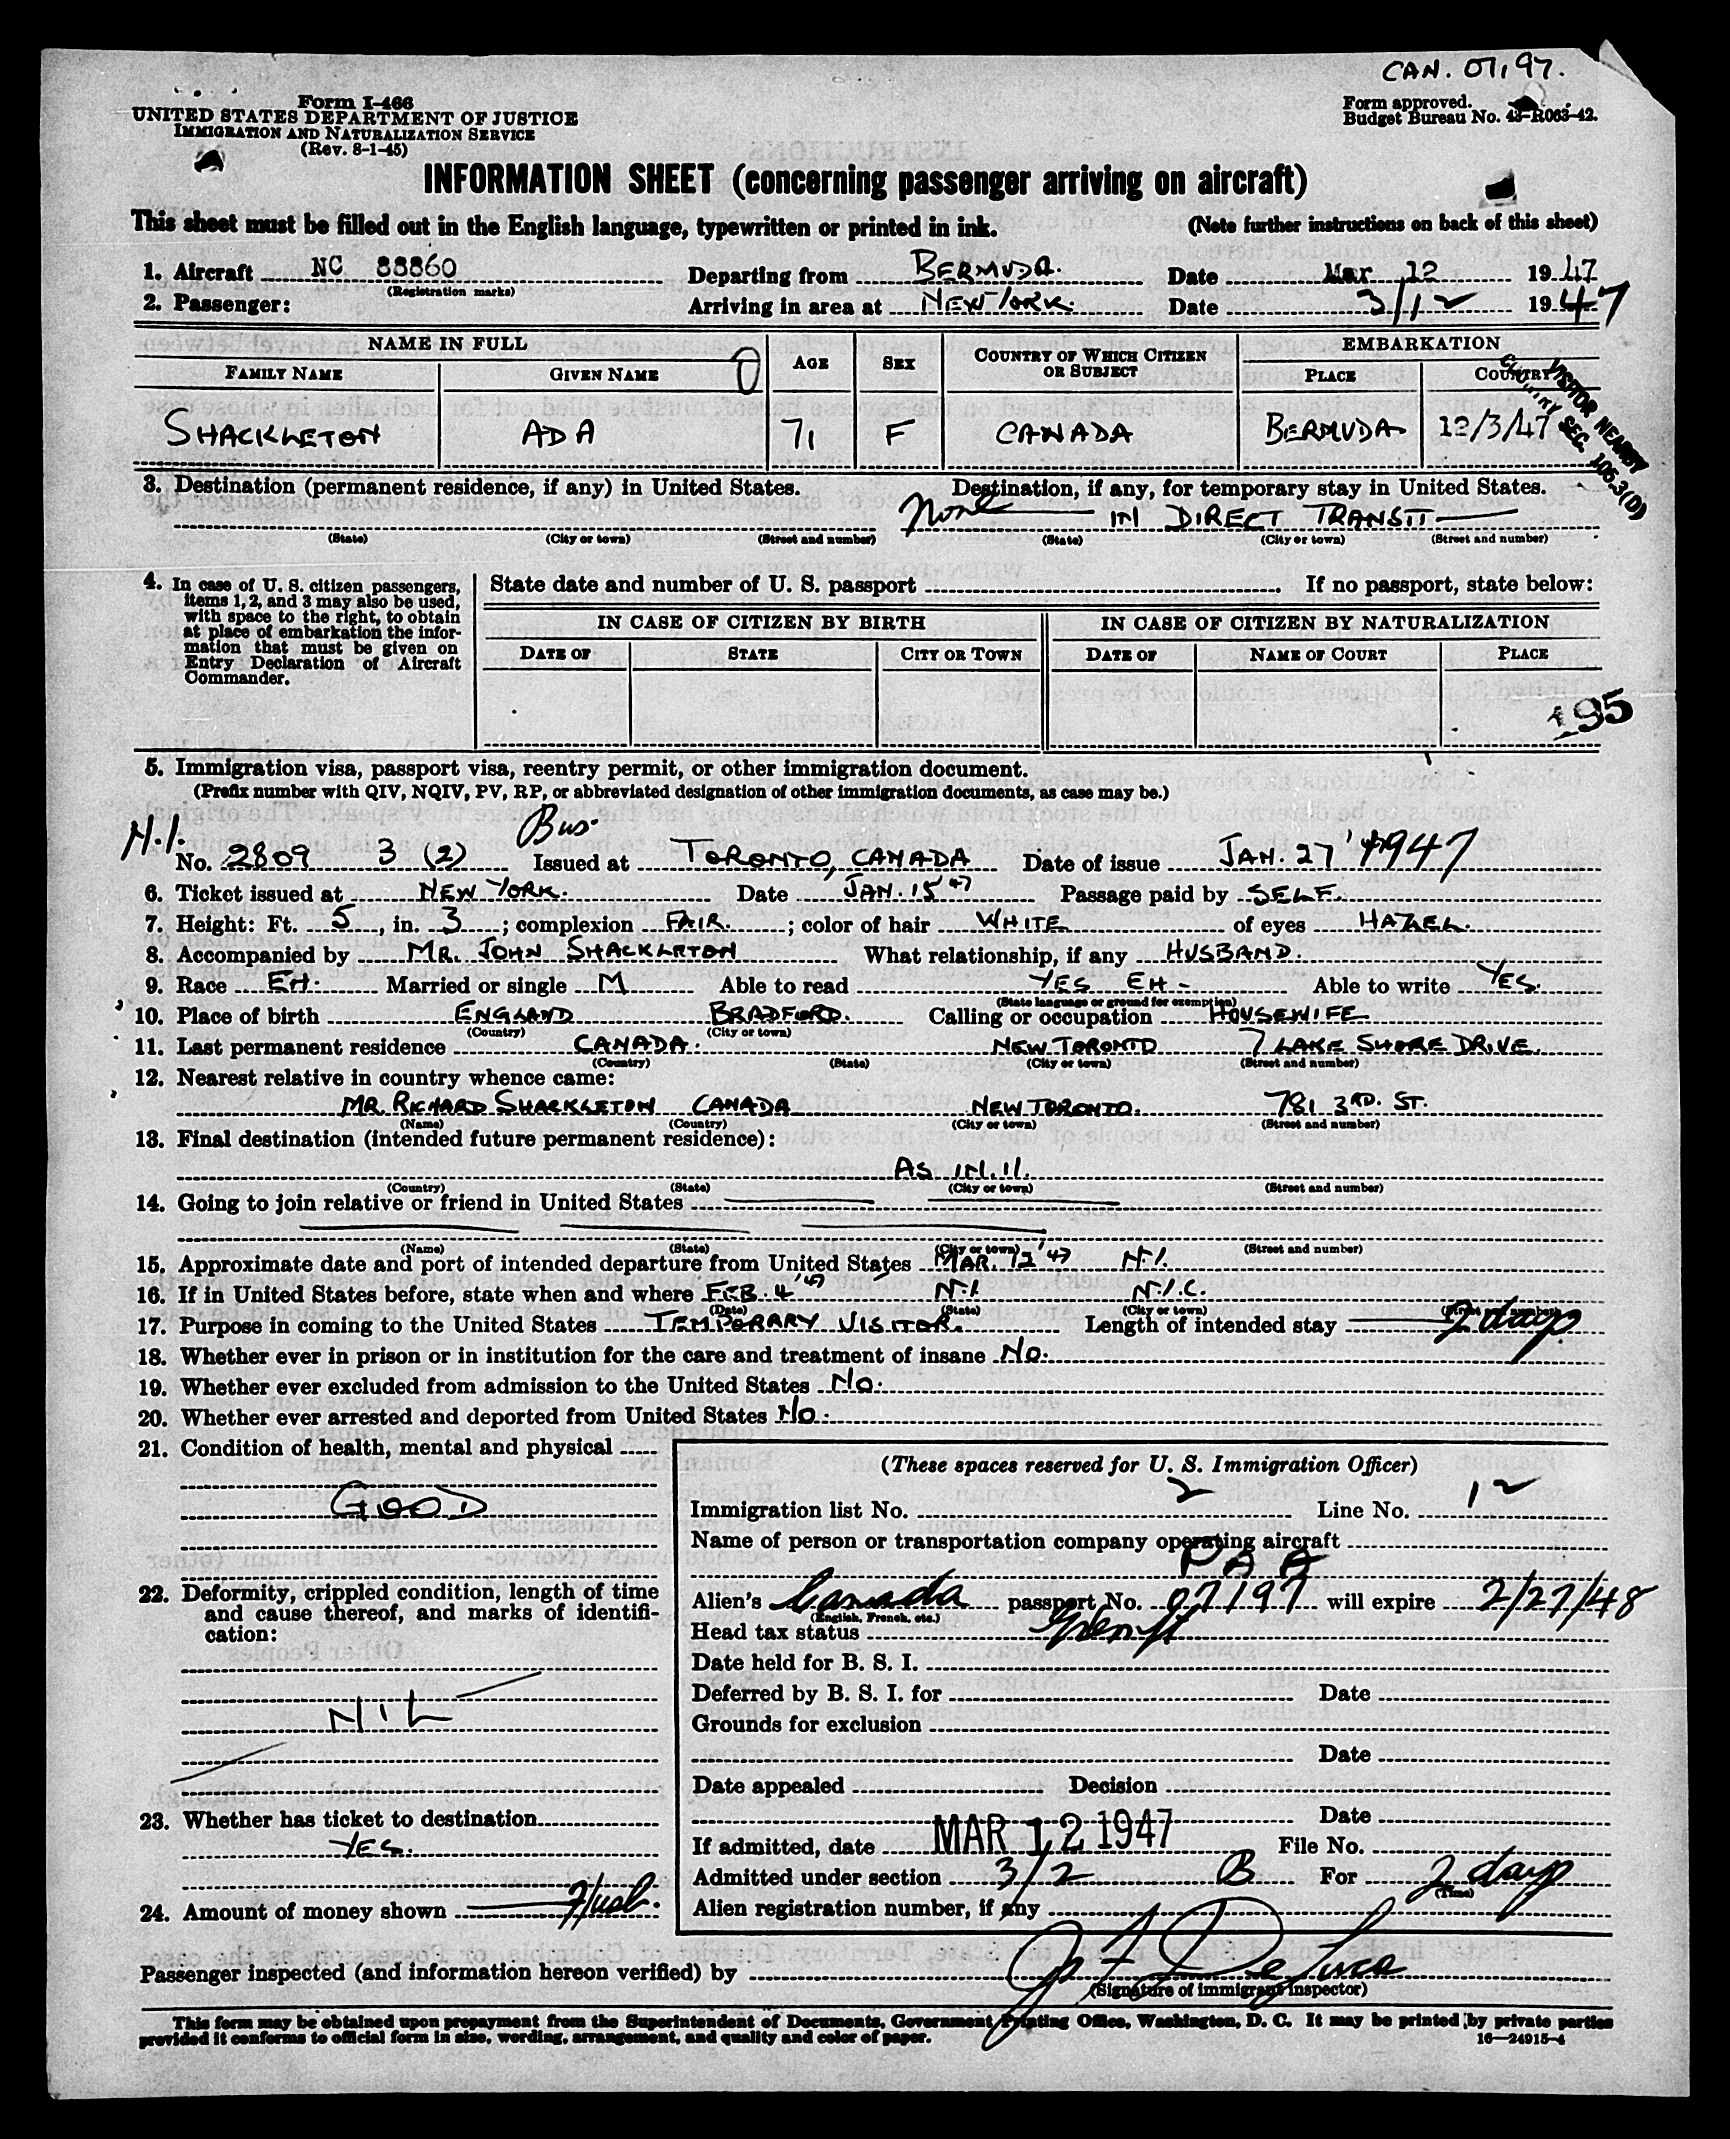 CAN. 07197.
Form I-466
UNITED STATES DEPARTMENT OF JUSTICE
IMMIGRATION AND NATURALIZATION SERVICE
(Rev. 8-1-45)
Form approved.
Budget Bureau No. 43-R063-42.
INFORMATION SHEET (concerning passenger arriving on aircraft)
This sheet must be filled out in the English language, typewritten or printed in ink. (Note further instructions on back of this sheet)
1. Aircraft NC 88860 Departing from BERMUDA. Date Mar 12 1947
(Registration marks)
2. Passenger: Arriving in area at NEW YORK. Date 3/12 1947
NAME IN FULL AGE SEX COUNTRY OF WHICH CITIZEN OR SUBJECT EMBARKATION
FAMILY NAME GIVEN NAME PLACE COUNTRY
SHACKLETON ADA 71 F CANADA BERMUDA 12/3/47
VISITOR NEARBY
COUNTRY SEC. 105.3(D)
3. Destination (permanent residence, if any) in United States. Destination, if any, for temporary stay in United States.
None IN DIRECT TRANSIT
(State) (City or town) (Street and number) (State) (City or town) (Street and number)
4. In case of U. S. citizen passengers, items 1, 2, and 3 may also be used, with space to the right, to obtain at place of embarkation the information that must be given on Entry Declaration of Aircraft Commander.
State date and number of U. S. passport If no passport, state below:
IN CASE OF CITIZEN BY BIRTH IN CASE OF CITIZEN BY NATURALIZATION
DATE OF STATE CITY OR TOWN DATE OF NAME OF COURT PLACE
195
5. Immigration visa, passport visa, reentry permit, or other immigration document.
(Prefix number with QIV, NQIV, PV, RP, or abbreviated designation of other immigration documents, as case may be.)
No. 2809 3 (2) Bus. Issued at TORONTO, CANADA Date of issue JAN. 27 1947
6. Ticket issued at NEW YORK. Date JAN. 15 '47 Passage paid by SELF.
7. Height: Ft. 5, in. 3; complexion FAIR.; color of hair WHITE of eyes HAZEL.
8. Accompanied by MR. JOHN SHACKLETON What relationship, if any HUSBAND.
9. Race EH. Married or single M Able to read YES EH- Able to write YES.
(State language or ground for exemption)
10. Place of birth ENGLAND BRADFORD. Calling or occupation HOUSEWIFE
(Country) (City or town)
11. Last permanent residence CANADA. NEW TORONTO 7 LAKE SHORE DRIVE.
(Country) (State) (City or town) (Street and number)
12. Nearest relative in country whence came:
MR. RICHARD SHACKLETON CANADA NEW TORONTO. 781 3RD. ST.
(Name) (Country) (City or town) (Street and number)
13. Final destination (intended future permanent residence):
AS IN. 11.
(Country) (State) (City or town) (Street and number)
14. Going to join relative or friend in United States
(Name) (State) (City or town) (Street and number)
15. Approximate date and port of intended departure from United States MAR. 12 '47 N.Y.
16. If in United States before, state when and where FEB. 4 '47 N.Y. N.Y.C.
(Date) (State) (City or town) (Street and number)
17. Purpose in coming to the United States TEMPORARY VISITOR. Length of intended stay 2 days
18. Whether ever in prison or in institution for the care and treatment of insane NO.
19. Whether ever excluded from admission to the United States NO.
20. Whether ever arrested and deported from United States NO.
21. Condition of health, mental and physical
GOOD
22. Deformity, crippled condition, length of time and cause thereof, and marks of identification:
NIL
23. Whether has ticket to destination
YES.
24. Amount of money shown Husb.
(These spaces reserved for U. S. Immigration Officer)
Immigration list No. 2 Line No. 12
Name of person or transportation company operating aircraft
PAA
Alien's Canada passport No. 07197 will expire 2/27/48
(English, French, etc.)
Head tax status
Date held for B. S. I.
Deferred by B. S. I. for Date
Grounds for exclusion
Date
Date appealed Decision
Date
If admitted, date MAR 12 1947 File No.
Admitted under section 3/2 B For 2 days
(Time)
Alien registration number, if any
Passenger inspected (and information hereon verified) by
(Signature of immigrant inspector)
This form may be obtained upon prepayment from the Superintendent of Documents, Government Printing Office, Washington, D. C. It may be printed by private parties
provided it conforms to official form in size, wording, arrangement, and quality and color of paper. 16—24915-4